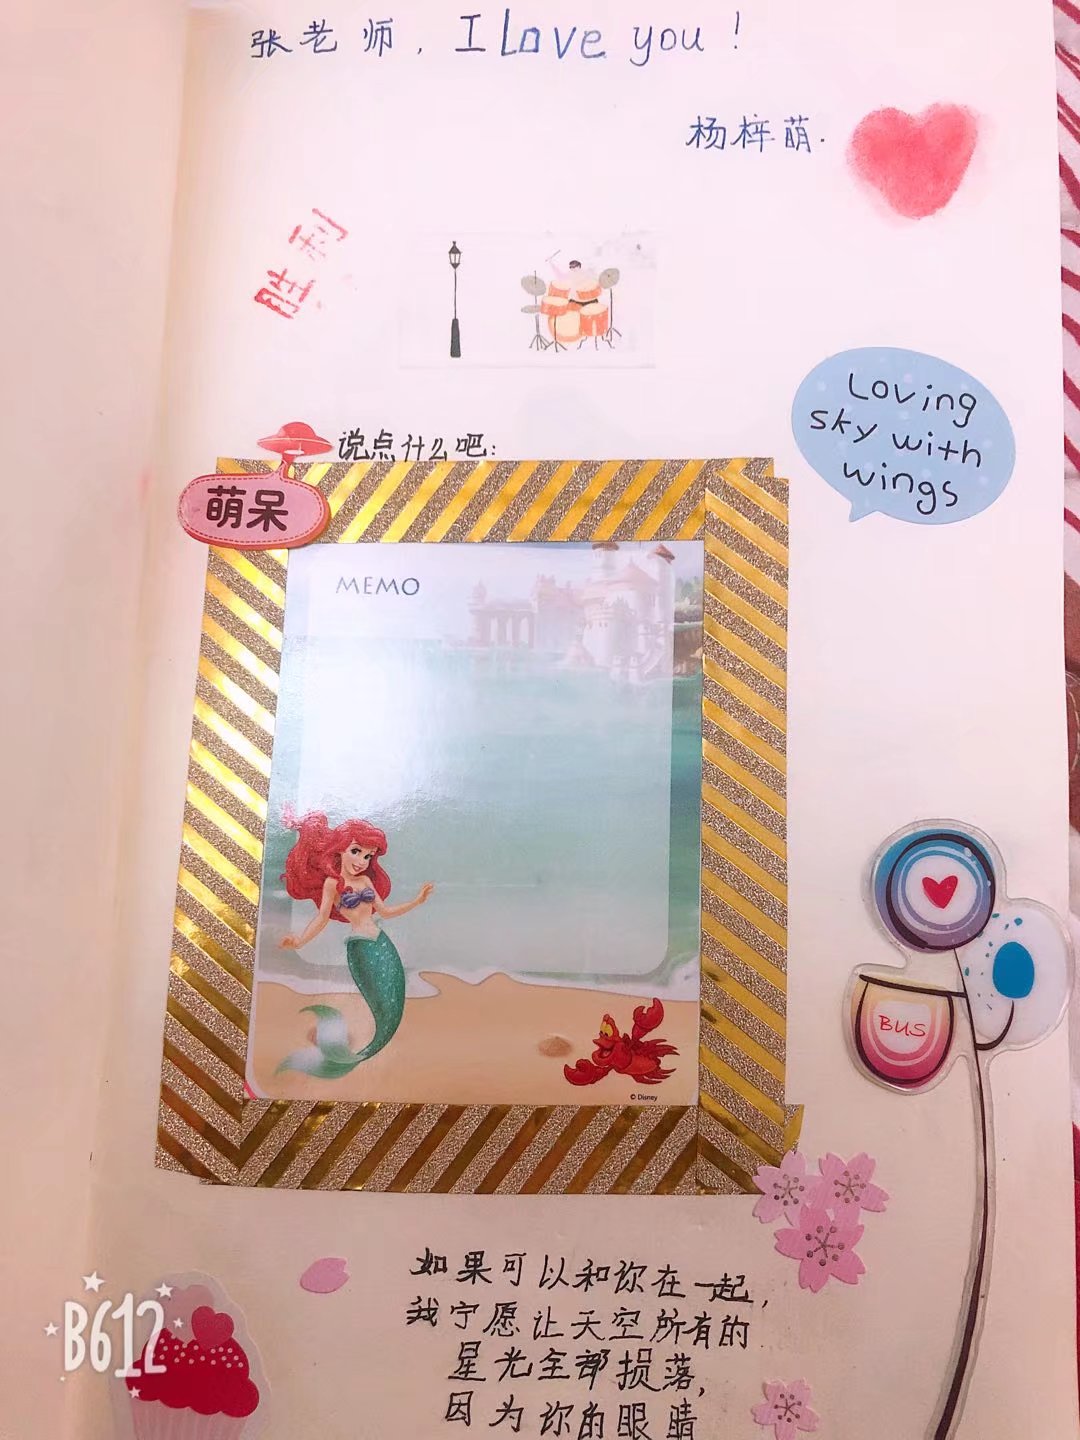 张老师，I Love you！
杨梓萌.
胜利
Loving
sky with
wings
说点什么吧：
萌呆
MEMO
BUS
© Disney
如果可以和你在一起，
我宁愿让天空所有的
星光全部损落，
因为你的眼睛
B612